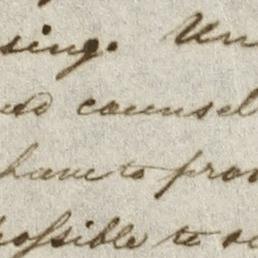 sing. Un
and counsel
have to prov
possible to